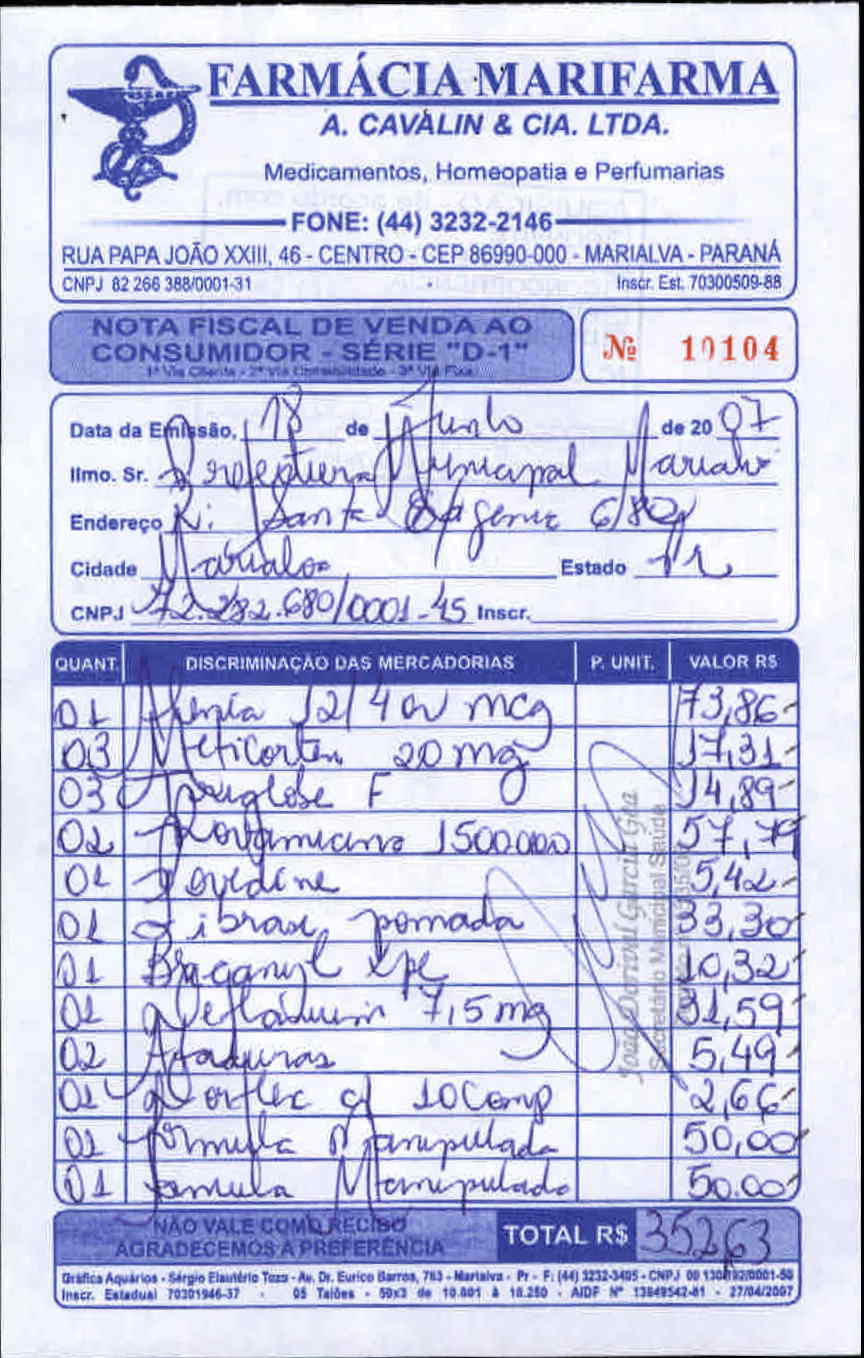 FARMÁCIA MARIFARMA
A. CAVALIN & CIA. LTDA.
Medicamentos, Homeopatia e Perfumarias
FONE: (44) 3232-2146
RUA PAPA JOÃO XXIII, 46 - CENTRO - CEP 86990-000 - MARIALVA - PARANÁ
CNPJ 82 266 388/0001-31 Inscr. Est. 70300509-88
NOTA FISCAL DE VENDA AO
CONSUMIDOR - SÉRIE "D-1"
1ª Via Cliente - 2ª Via Contabilidade - 3ª Via Fixa
Nº 10104
Data da Emissão, 18 de Junho de 20 07
Ilmo. Sr. Prefeitura Municipal Marialva
Endereço R: Santa Efigenia 680
Cidade Marialva Estado Pr
CNPJ 72.282.680/0001-45 Inscr.
QUANT. DISCRIMINAÇÃO DAS MERCADORIAS P. UNIT. VALOR R$
01 Alenia 12/400 mcg 73,86
03 Meticorten 20 mg 17,31
03 F 14,89
02 Rovamicina 1500000 57,79
01 Povedine 5,42
01 Fibrase pomada 33,30
01 xpe 10,32
01 Deflazacort 7,5 mg 31,59
02 Ataduras 5,49
01 Dorflex c/ 10 Comp 2,66
01 formula Manipulada 50,00
01 formula Manipulado 50.00
João Dorival Garcia Gea
Secretário Municipal Saúde
NÃO VALE COMO RECIBO
AGRADECEMOS A PREFERÊNCIA
TOTAL R$ 352,63
Gráfica Aquários - Sérgio Elautério Tozo - Av. Dr. Eurico Barros, 763 - Marialva - Pr - F: (44) 3232-3405 - CNPJ
Inscr. Estadual 70301946-37 - 05 Talões - 50x3 de 10.001 à 10.250 - AIDF Nº 13849542-81 - 27/04/2007